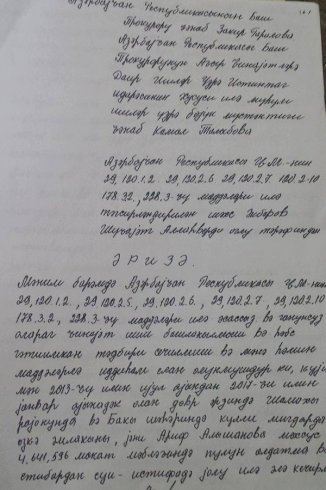 Азәрбајҹан Республикасынын Баш
Прокурору ҹәнаб Закир Гараловa
Азәрбајҹан Республикасы Баш
Прокурорунун Ағыр Ҹинајәтләрә
Даир Ишләр Үзрә Истинтаг
идарәсинин хүсуси илә
ишләр үзрә бөјүк мүстәнтиги
ҹәнаб Камал
Азәрбајҹан Республикасы Ҹ.М.-нин
29, 120.1.2. 29, 120.2.6 29, 120.2.7 120.2.10
178.3.2, 228.3-ҹү маддәләри илә
тәгсирләндирилән шәхс
Шүҹајәт Аллаһверди оғлу тәрәфиндән
ӘРИЗӘ.
Мәним барәмдә Азәрбајҹан Республикасы Ҹ.М-нин
29, 120.1.2., 29, 120.2.5., 29, 120.2.6., 29, 120.2.7, 29, 120.2.10
178.3.2., 228.3-ҹү маддәләри илә әсассыз вә ганунсуз
олараг ҹинајәт иши башланылмыш вә һәбс
гәтимкан тәдбири сечилмиш вә мәнә һәмин
маддәләрлә иттиһам елан олунмушдур ки, куја
мән 2013-ҹү илин ијул ајындан 2017-ҹи илин
јанвар ајынадәк олан дөвр әрзиндә Шамахы
рајонунда вә Бакы шәһәриндә күлли мигдарда
өзкә әмлакыны, јәни Ариф мәхсус
4,641,596 манат мәбләғиндә пулун алдатма вә
етибардан суи-истифадә јолу илә әлә кечирмә